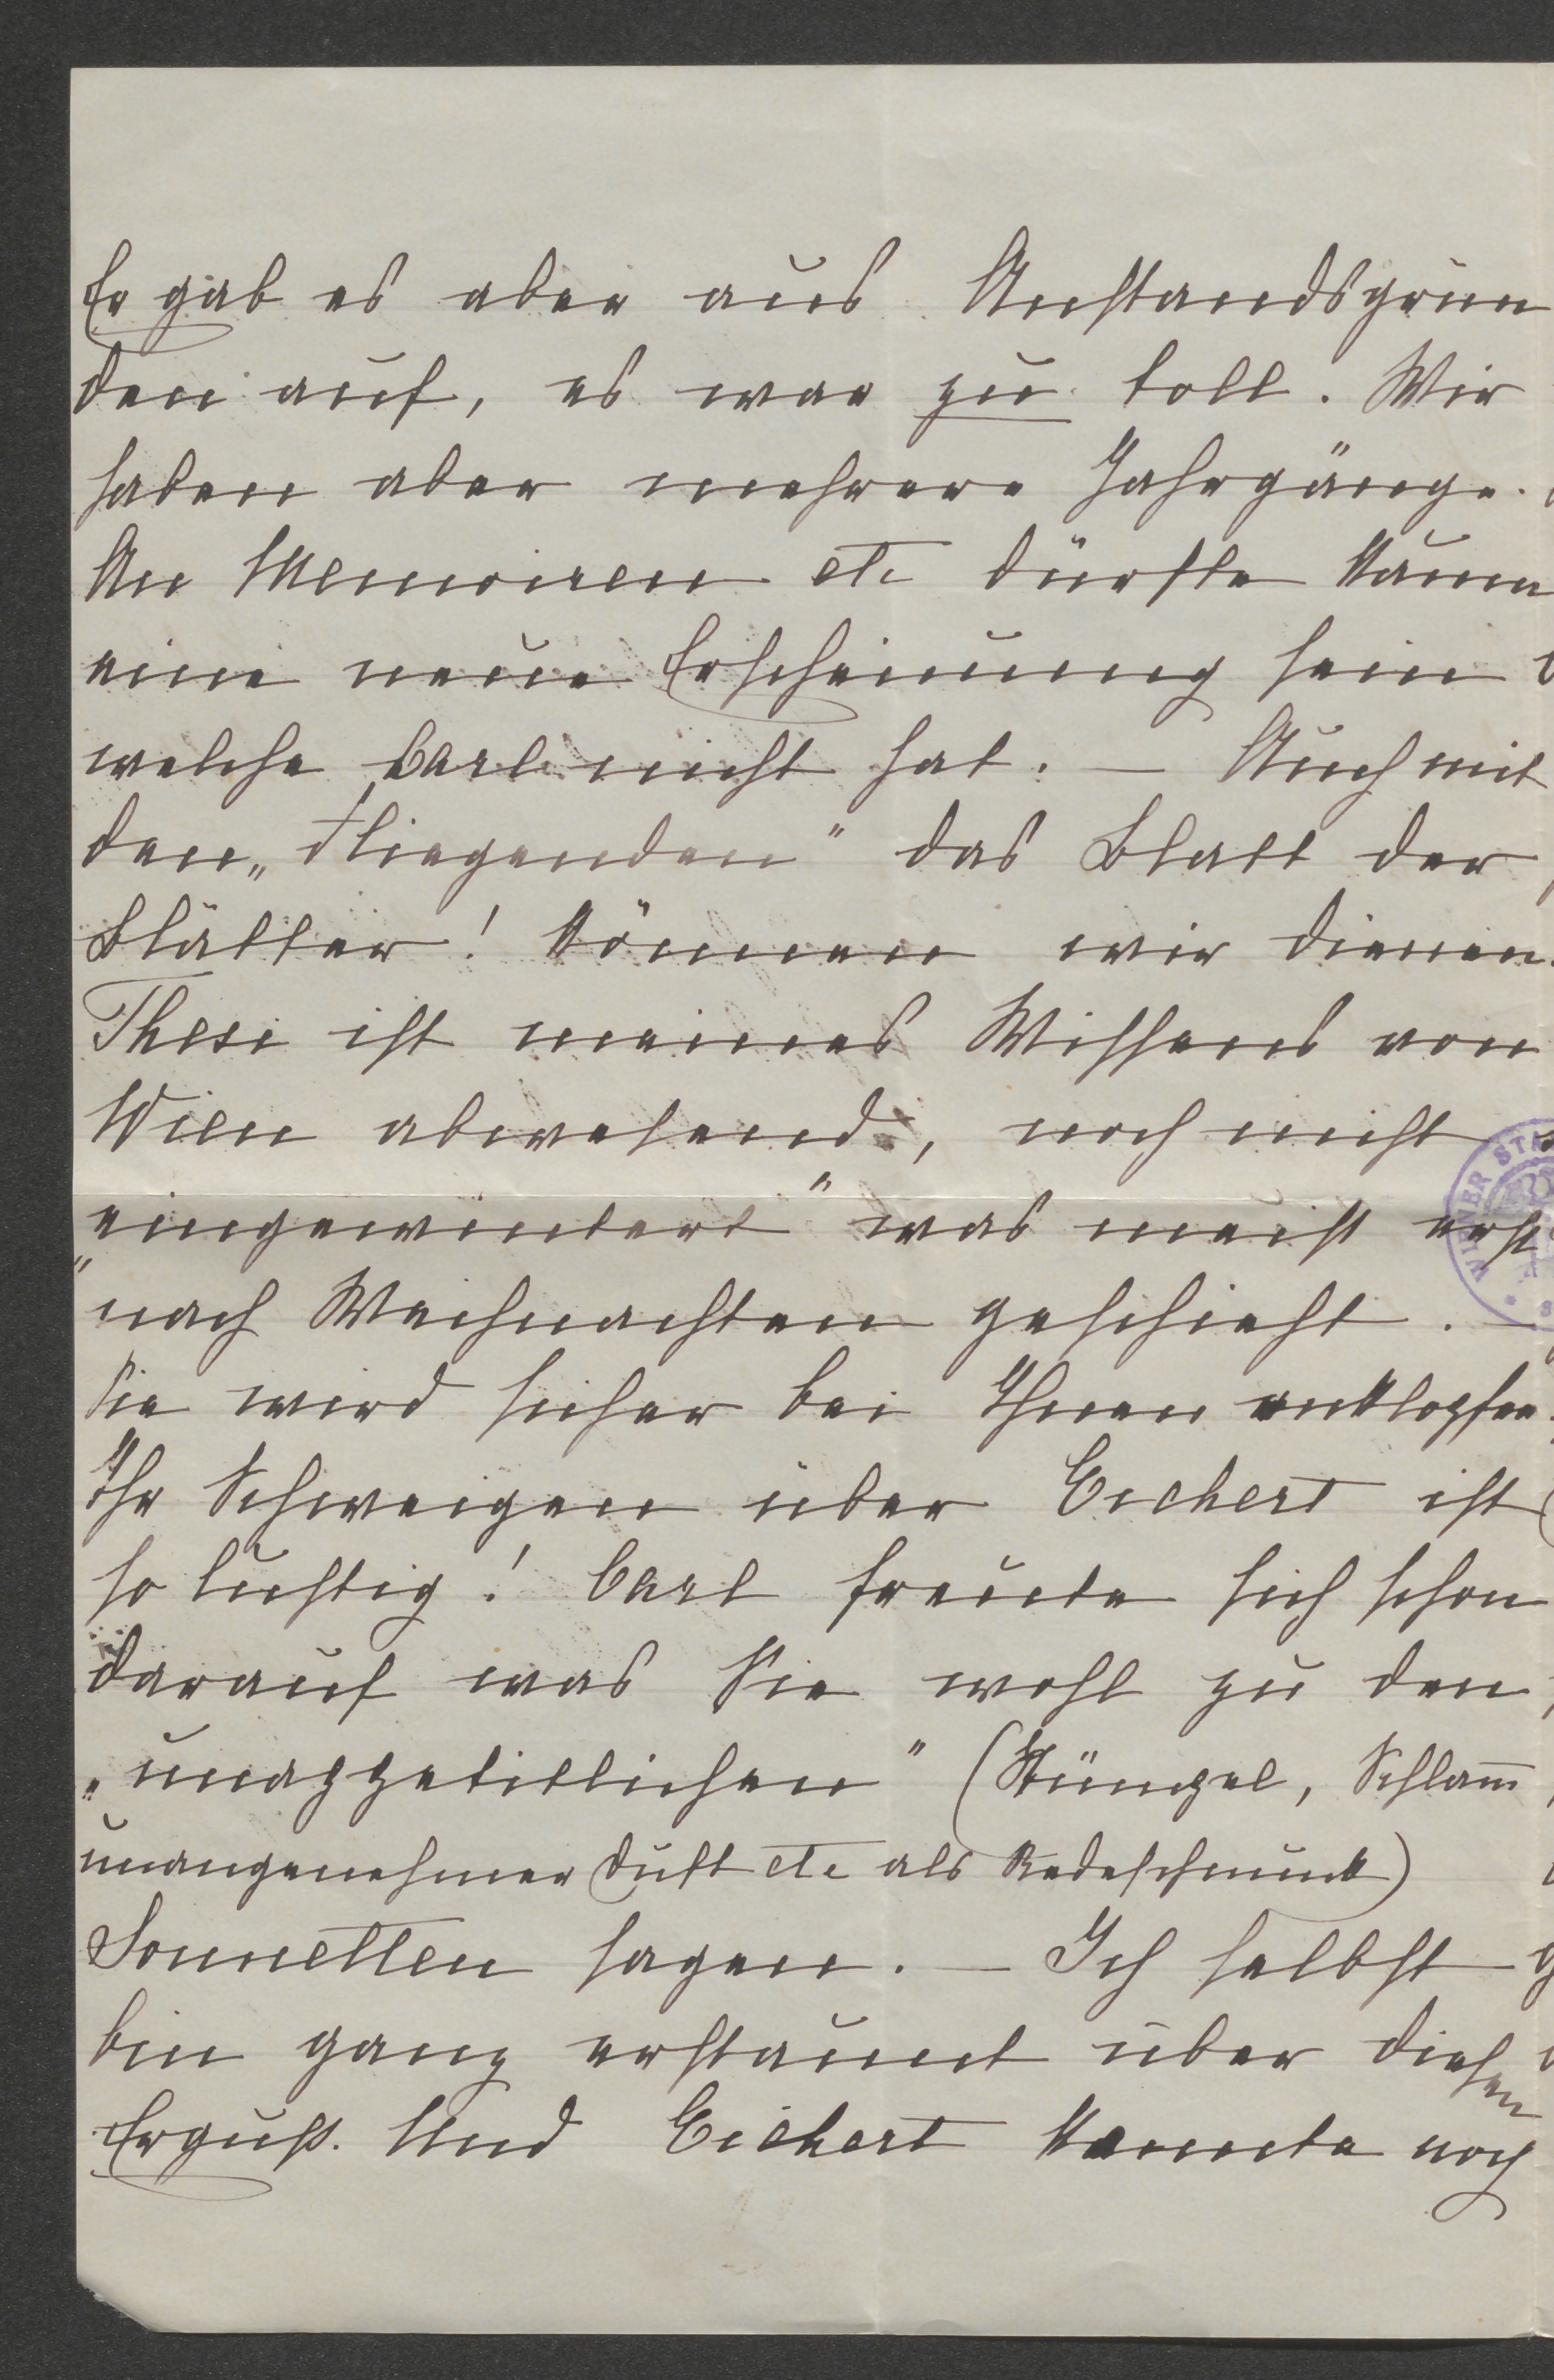 Er gab es aber aus Anstandsgrün
den auf, es war zu toll. Wir
haben aber mehrere Jahrgänge.
An Memoiren etc dürfte kaum
eine neue Erscheinung sein
welche Carl nicht hat. — Auch mit
den „Fliegenden" das Blatt der
Blätter! können wir dienen.
Thesi ist meines Wissens von
Wien abwesend, noch nicht
„eingewintert" was meist erst
nach Weihnachten geschieht. —
Sie wird sicher bei Ihnen anklopfen.
Ihr Schweigen über Eichert ist
so lustig! Carl freute sich schon
darauf was Sie wohl zu den
„unappetitlichen" (Tümpel, Schlam̅
unangenehmer Duft etc als Redeschmuck)
Sonnetten sagen. — Ich selbst
bin ganz erstaunt über diesen
Erguß. Und Eichert kannte noch
WIENER STA